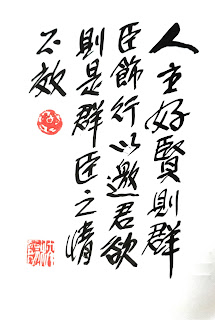 人主好賢則群
臣飾行以邀君欲
則是群臣之情
不效